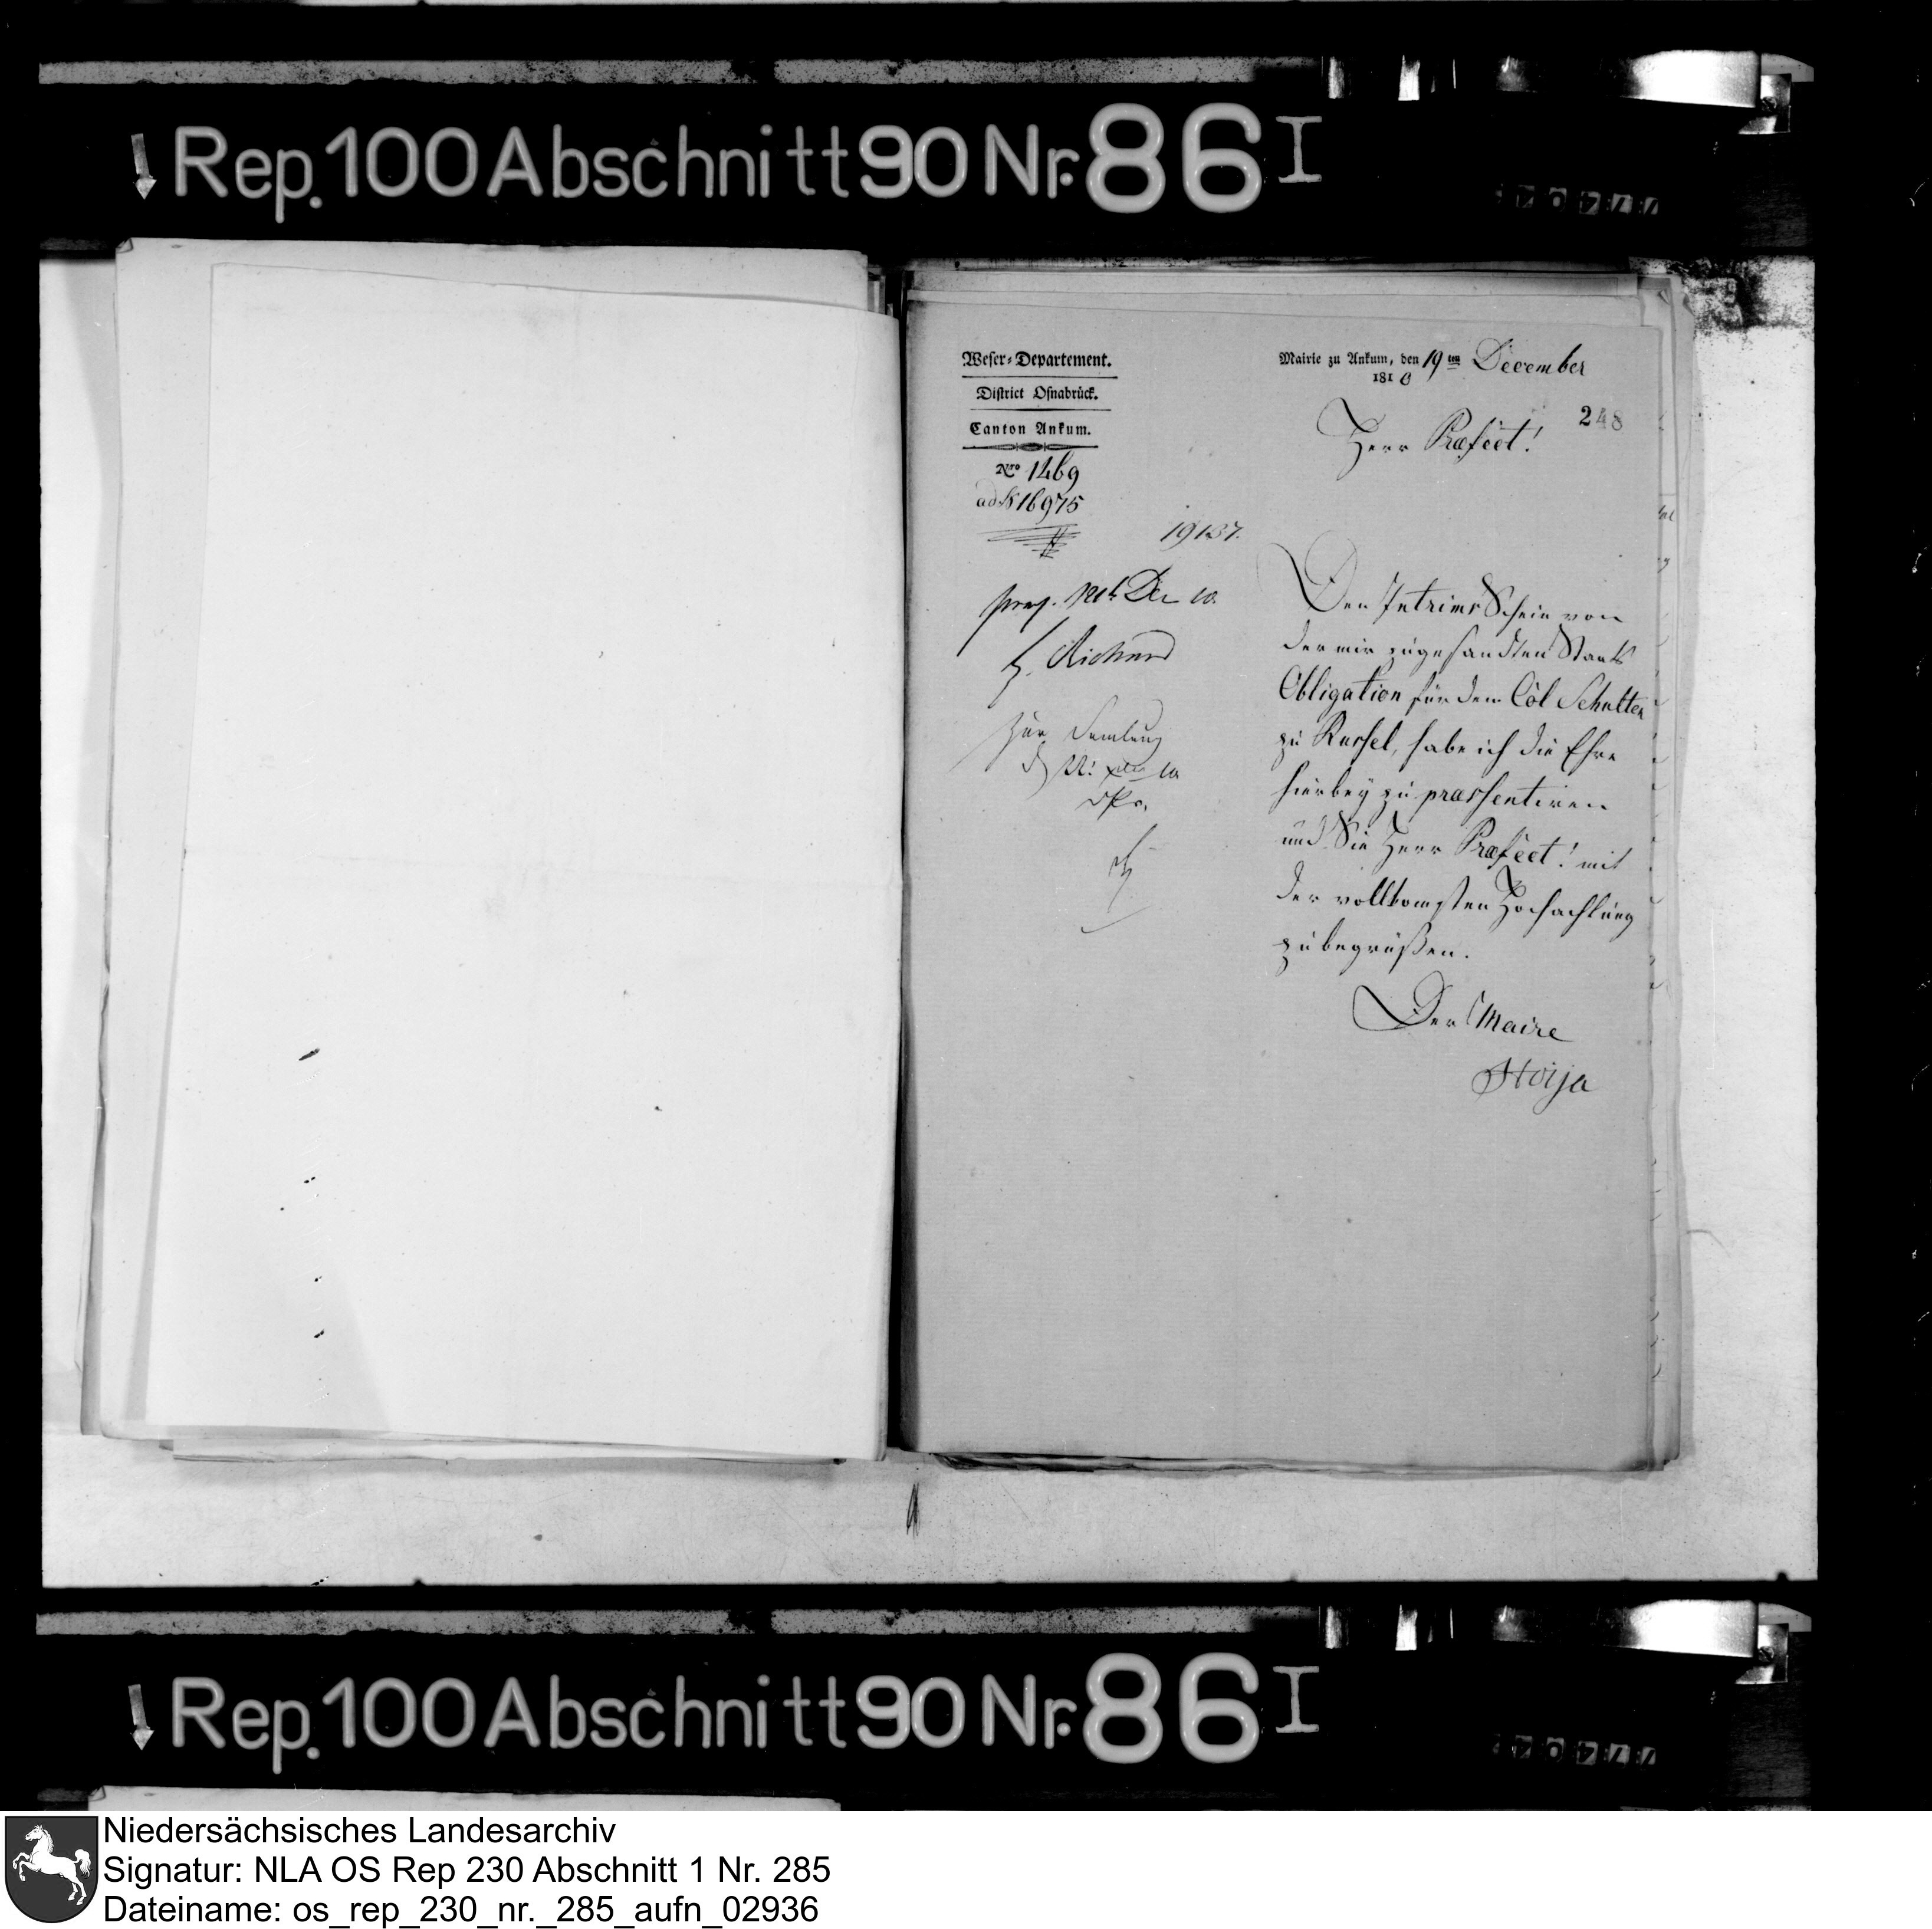 Rep. 100 Abschnitt 90 Nr. 86 I
Weser-Departement.
District Osnabrück.
Canton Ankum.
Nro 1469
ad N 16975
19137.
Mairie zu Ankum, den 19ten December
1810
248
Herr Præfect!
Den Intrims Schein von
der mir zugesandten Staats
Obligation für dem Col Schulten
zu Russel, habe ich die Ehre
hierbey zu præssentiren
und Sie Herr Præfect! mit
der vollkomsten Hochachtung
zu begrüßen.
Der Maire
Hoija
praes. Dec 10.
Richard
zur Samlung
Rep. 100 Abschnitt 90 Nr. 86 I
Niedersächsisches Landesarchiv
Signatur: NLA OS Rep 230 Abschnitt 1 Nr. 285
Dateiname: os_rep_230_nr._285_aufn_02936